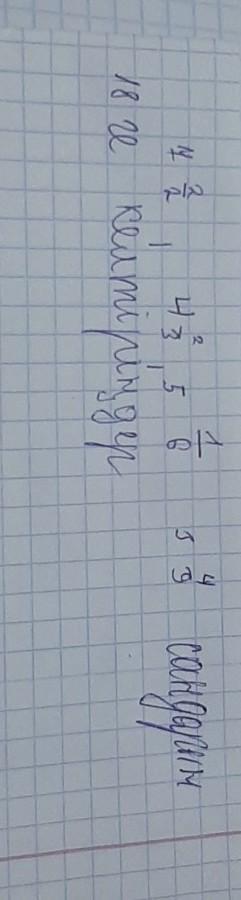 4 2/2, 4 2/3, 5 1/6 5 4/9 сандарын
18 ге келтіріңдер